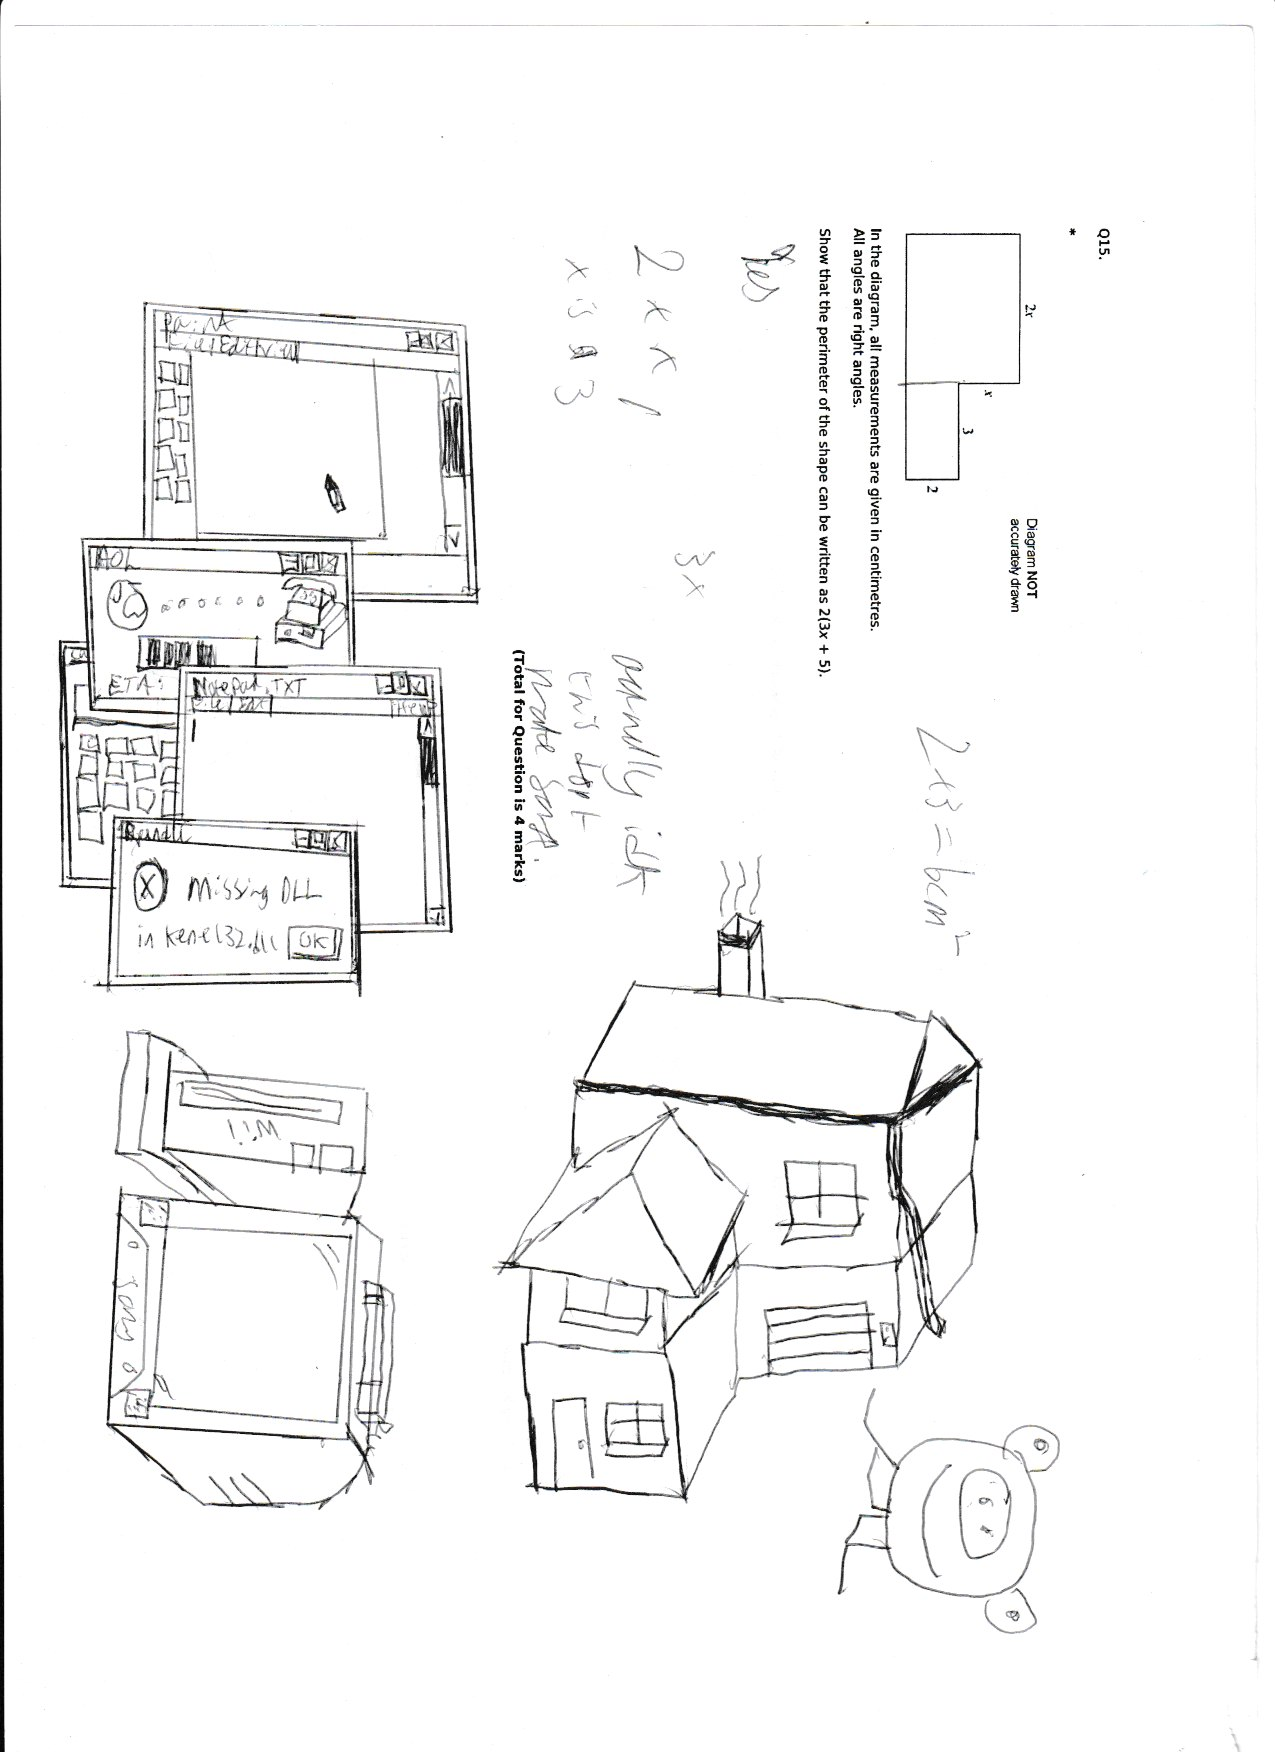 Q15.
*
2x
x
3
2
Diagram NOT
accurately drawn
In the diagram, all measurements are given in centimetres.
All angles are right angles.
Show that the perimeter of the shape can be written as 2(3x + 5).
Yes
2 x x 1
x is a 3
3x
2x3 = 6cm²
(Total for Question is 4 marks)
actually idk
this dont
make sense.
paint
File/Edit/View
AOL
ETA:
Notepad.TXT
File/Edit
Missing DLL
in Kenel32.dll
OK
Wii
Sony